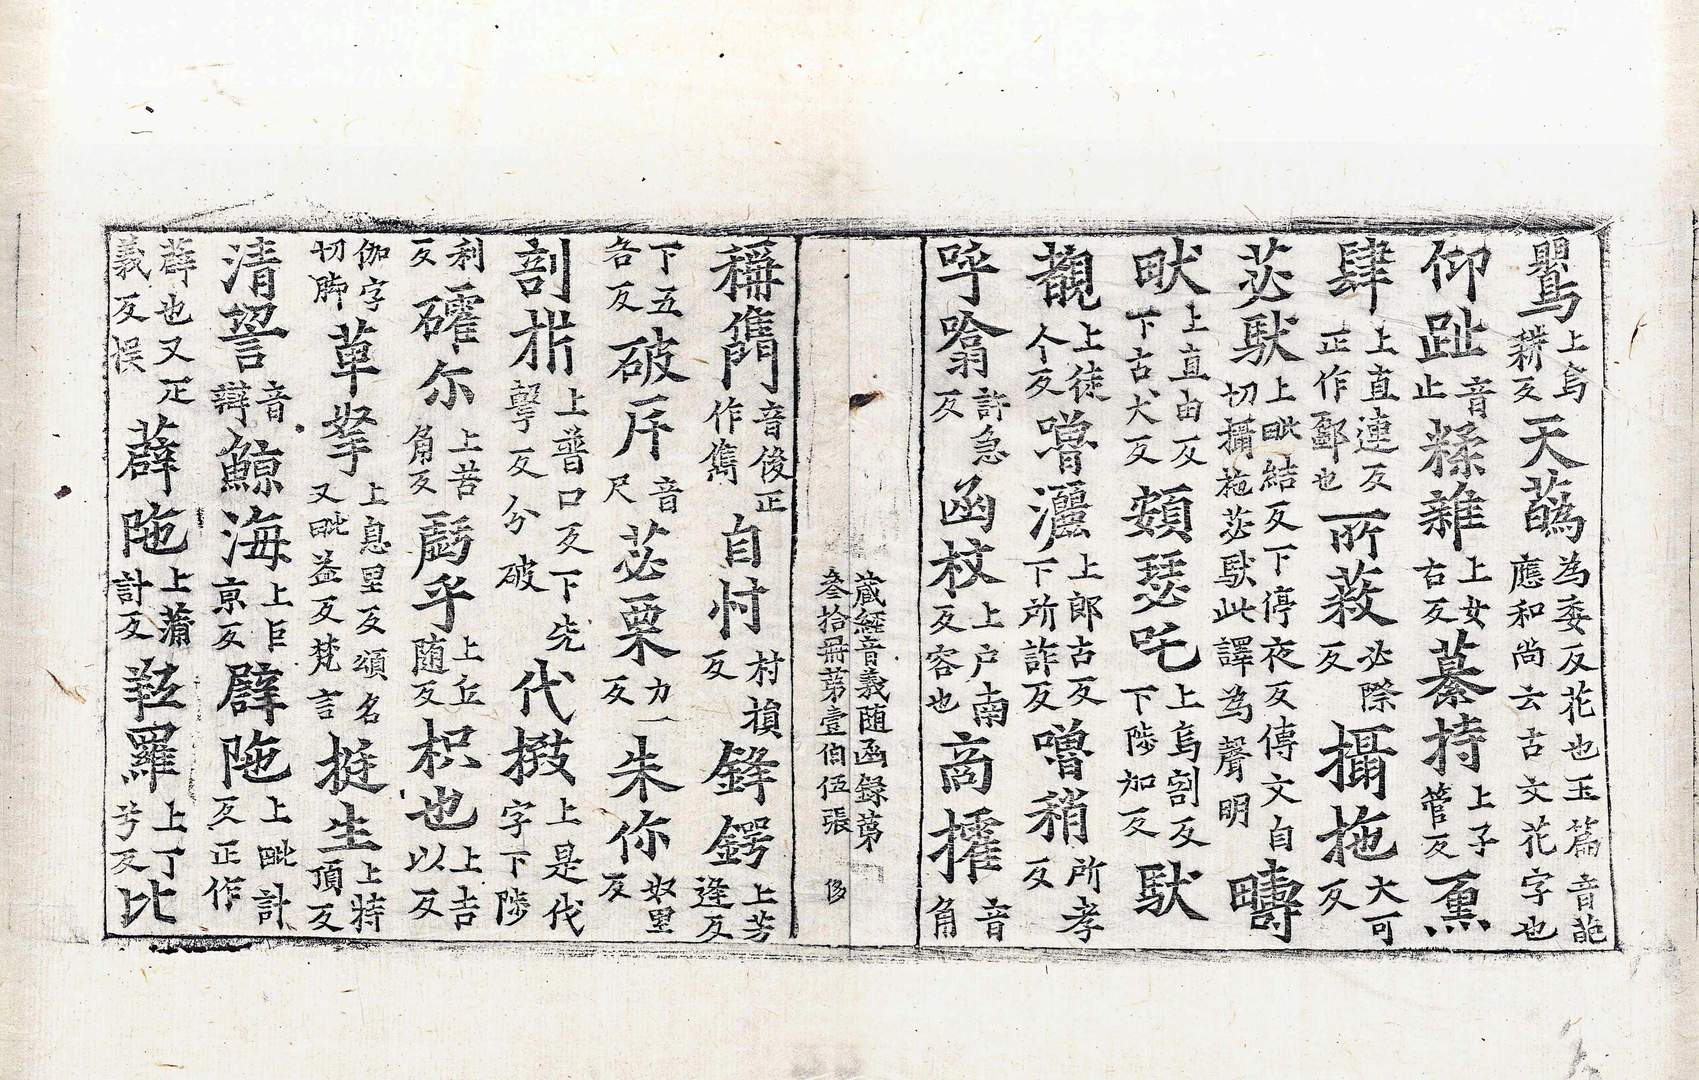 鷪上烏耕反天蒍為委反花也玉篇音葩應和尚云古文花字也
仰趾音止糅雜上女右反纂持上子管反熏
肆上直連反正作鄽也所蔽必際反攝拖大可反
苾馱上毗結反下停夜反傳文自切攝拖苾馱此譯為聲明疇
畎上直由反下古犬反頞瑟吒上烏割反下陟加反馱
覩上徒个反嚕灑上郎古反下所詐反嚕稍所孝反
呼噏許急反函杖上戶南反容也商搉音角
藏經音義随函録第叁拾冊第壹伯伍張 侈
稱雋音俊正作雋自忖村損反鋒鍔上芳逢反
下五各反破斥音尺苾栗力一反朱你奴里反
剖析上普口反下先擊反分破代撥上是代字下陟
確尓上苦角反虧乎上丘随反枳也上吉以反
伽字切脚革拏上息里反頌名又毗益反梵言挺生上特頂反
清詧音辯鯨海上巨京反臂陁上毗計反正作
薜也又疋義反悮薜陁上蒲計反䩭羅上丁兮反比